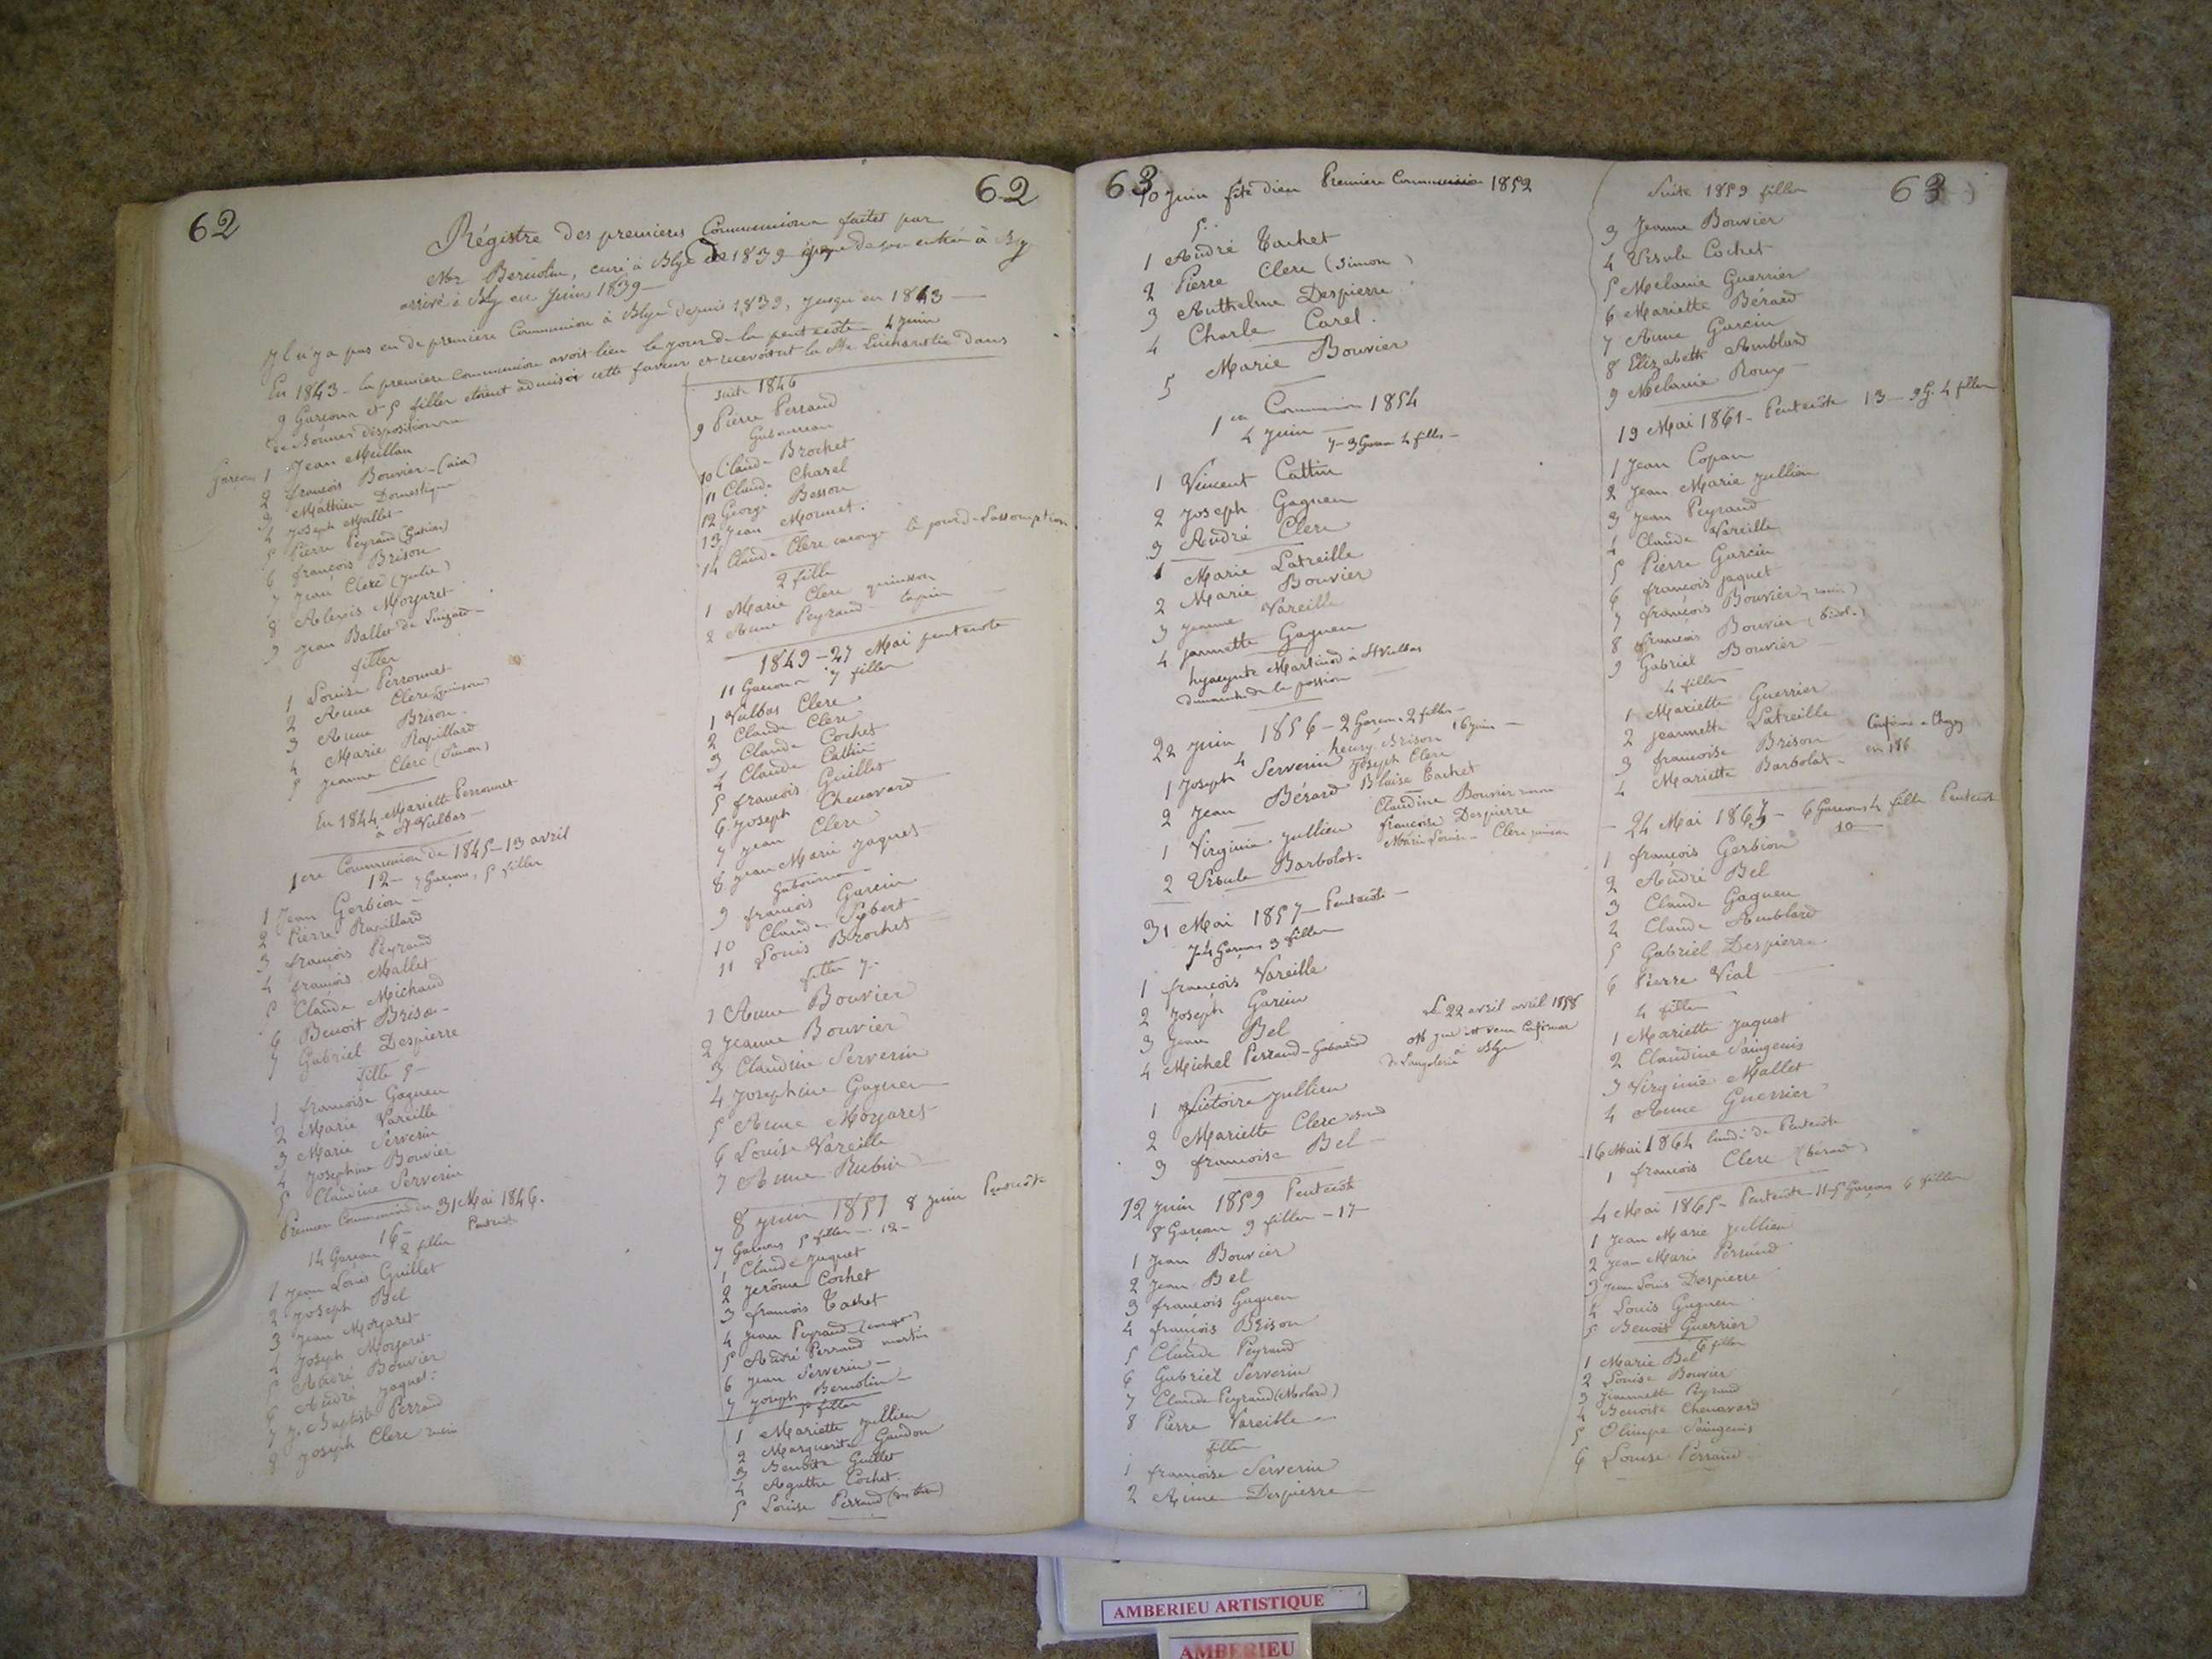 62
62
Régistre des premieres Communions faites par
Mr Bernolin, curé à Blye de 1839 époque de son entrée à Bly
arrivé à Bly en Juin 1839
Il n'y a pas eu de premiere Communion à Blye depuis 1839, jusqu'en 1843
En 1843 - la premiere Communion avoit lieu le jour de la pentecôte 4 juin
9 Garçons et 5 filles etoient admis à cette faveur et recevoient la Ste Eucharistie dans
de bonnes dispositions
Garçons 1 Jean Meillan
2 françois Bouvier (ain)
3 Mathieu Domestique
4 Joseph Mallet
5 Pierre Peyraud (Gation)
6 françois Brison
7 Jean Clerc (Julie)
8 Alexis Moyaret
9 Jean Ballet de
filles
1 Louise Perronnet
2 Anne Clerc
3 Anne Brison
4 Marie Rapillard
5 Jeanne Clerc (Simon)
En 1844 Mariette Perronnet
à St Vulbas
1ere Communion de 1845 - 13 avril
12 - 7 Garçons, 5 filles
1 Jean Gerbion
2 Pierre Rapillard
3 françois Peyraud
4 françois Mallet
5 Claude Michaud
6 Benoit Brison
7 Gabriel Despierre
filles 5
1 françoise Gagneu
2 Marie Vareille
3 Marie Serverin
4 Josephine Bouvier
5 Claudine Serverin
Premiere Communion du 31 Mai 1846.
16
14 Garçons 2 filles Pentecôte
1 Jean Louis Guillet
2 Joseph Bel
3 Jean Moyaret
4 Joseph Moyaret
5 André Bouvier
6 André Jaquet
7 J. Baptiste Perraud
8 Joseph Clerc
suite 1846
9 Pierre Perraud
10 Claude Brochet
11 Claude Charel
12 George Besson
13 Jean Monnet.
14 Claude Clerc le jour de l'assomption
2 filles
1 Marie Clerc quinsson
2 Anne Peyraud lapin
1849 - 27 Mai pentecôte
11 Garçons 7 filles
1 Vulbas Clerc
2 Claude Clerc
3 Claude Cochet
4 Claude Cattin
5 françois Guillet
6 Joseph Chenavard
7 Jean Clerc
8 Jean Marie Jaquet
9 françois Garcin
10 Claude Sybert
11 Louis Brochet
filles 7
1 Anne Bouvier
2 Jeanne Bouvier
3 Claudine Serverin
4 Josephine Gagneu
5 Anne Moyaret
6 Louise Vareille
7 Anne Rubin
8 juin 1851 8 juin Pentecôte
7 Garçons 5 filles - 12
1 Claude Jaquet
2 Jerôme Cochet
3 françois Tachet
4 Jean Peyraud
5 André Perraud martin
6 Jean Serverin
7 Joseph Bernolin
5 filles
1 Mariette Jullien
2 Marguerite Gandon
3 Benoite Guillet
4 Agathe Cochet
5 Louise Perraud
63
10 juin fête dieu Premiere Communion 1852
5.
1 André Tachet
2 Pierre Clerc (Simon)
3 Anthelme Despierre
4 Charle Carel.
5 Marie Bouvier
1ere Communion 1854
4 juin
7 - 3 Garçons 4 filles
1 Vincent Cattin
2 Joseph Gagneu
3 André Clerc
1 Marie Latreille
2 Marie Bouvier
3 Jeanne Vareille
4 Jannette Gagneu
hyacynte Martinod à St Vulbas
dimanche de la passion
22 juin 1856 - 2 Garçons 2 filles
4 henry Brison 16 juin
1 Joseph Serverin Joseph Clerc
2 Jean Bérard Blaise Tachet
1 Virginie Jullien Claudine Bouvier
2 Ursule Barbolat françoise Despierre
Marie Louise Clerc
31 Mai 1857 - Pentecôte
7 4 Garçons 3 filles
1 françois Vareille
2 Joseph Garcin
3 Jean Bel
4 Michel Perraud
Le 22 avril avril 1858
est venu Confirmer
de Langalerie à Blye
1 Victoire Jullien
2 Mariette Clerc
3 françoise Bel
12 juin 1859 Pentecôte
8 Garçons 9 filles - 17
1 Jean Bouvier
2 Jean Bel
3 françois Gagneu
4 françois Brison
5 Claude Peyraud
6 Gabriel Serverin
7 Claude Peyraud (Molard)
8 Pierre Vareille
filles
1 françoise Serverin
2 Anne Despierre
63
Suite 1859 filles
3 Jeanne Bouvier
4 Ursule Cochet
5 Melanie Guerrier
6 Mariette Bérard
7 Anne Garcin
8 Elizabeth Amblard
9 Melanie Roux
19 Mai 1861 - Pentecôte 13 - 9 G. 4 filles
1 Jean Copan
2 Jean Marie Jullien
3 Jean Peyraud
4 Claude Vareille
5 Pierre Garcin
6 françois Jaquet
7 françois Bouvier
8 françois Bouvier
9 Gabriel Bouvier
4 filles
1 Mariette Guerrier
2 Jeannette Latreille
3 françoise Brison
4 Mariette Barbolat
Confirmé à Chazey
en 186
24 Mai 1863 - 6 Garçons 4 filles Pentecôte
10
1 françois Gerbion
2 André Bel
3 Claude Gagneu
4 Claude Amblard
5 Gabriel Despierre
6 Pierre Vial
4 filles
1 Mariette Jaquet
2 Claudine Saingenis
3 Virginie Mallet
4 Anne Guerrier
16 Mai 1864 lundi de Pentecôte
1 françois Clerc (bérard)
4 Mai 1865 - Pentecôte 11 - 5 Garçons 6 filles
1 Jean Marie Jullien
2 Jean Marie Perraud
3 Jean Louis Despierre
4 Louis Gagneu
5 Benoit Guerrier
6 filles
1 Marie Bel
2 Louise Bouvier
3 Jeannette Peyraud
4 Benoite Chenavard
5 Olimpe Saingenis
6 Louise Perraud
AMBERIEU ARTISTIQUE
AMBERIEU